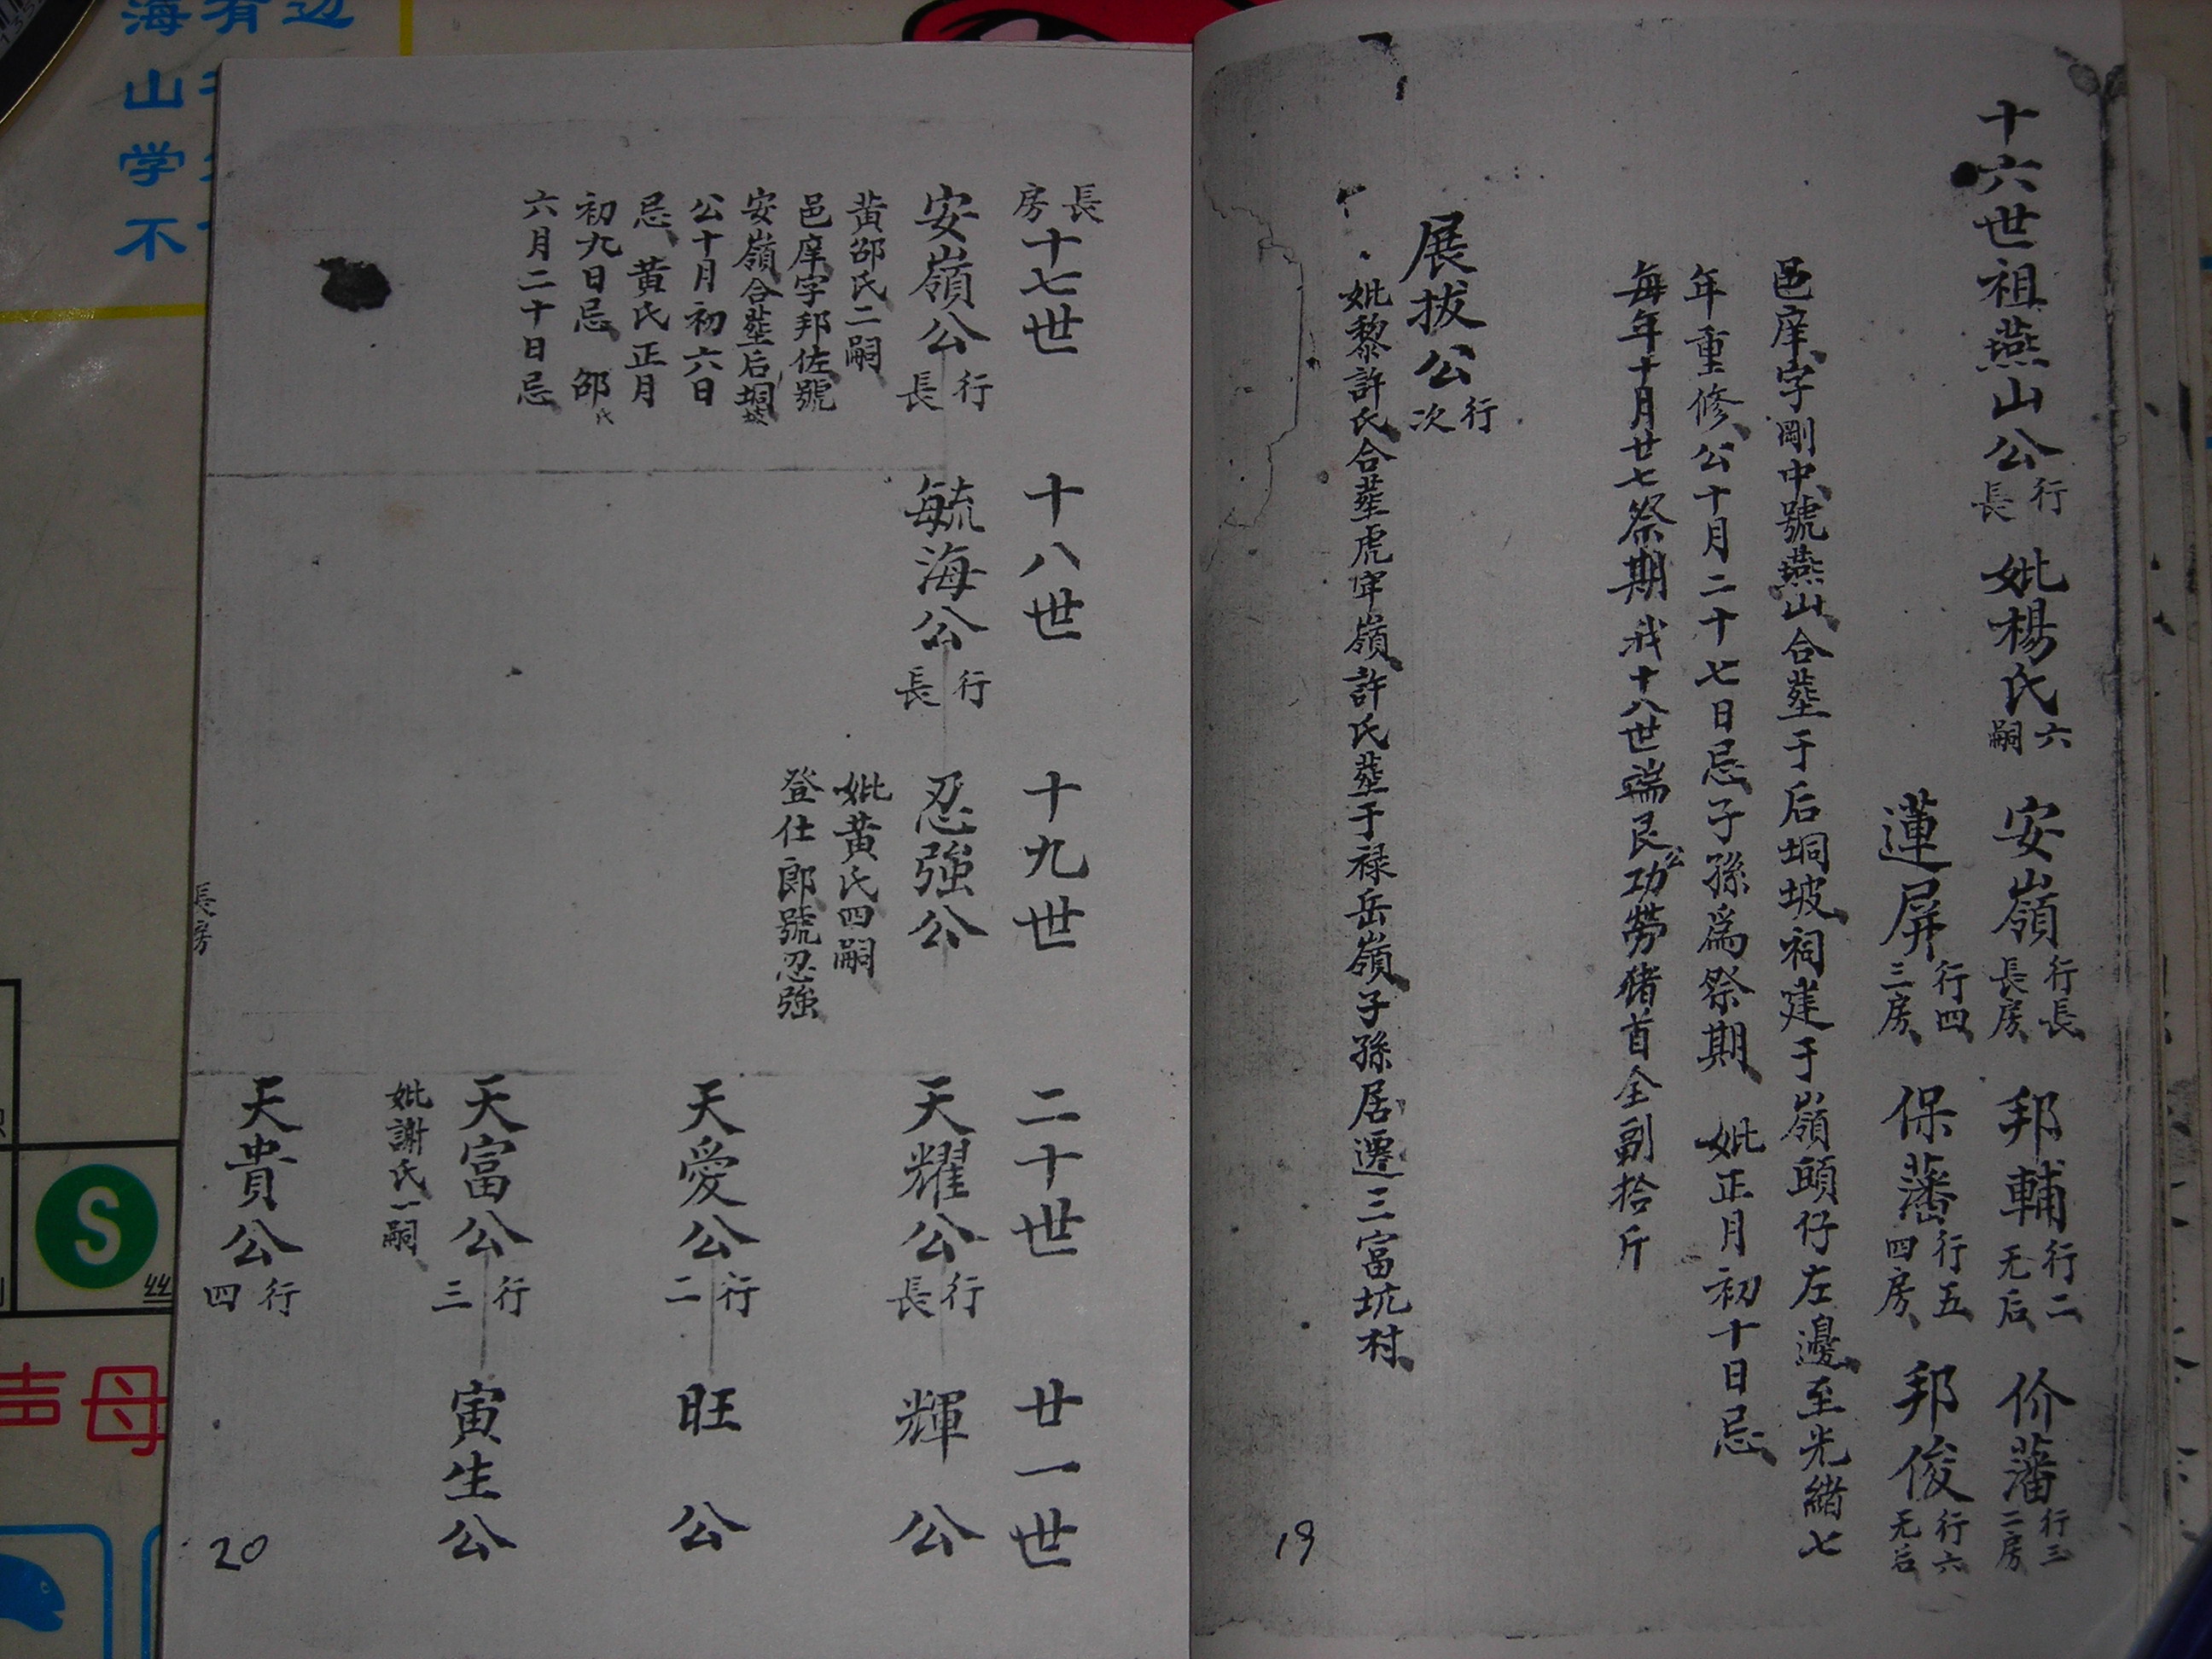 十六世祖燕山公行長 妣楊氏六嗣 安嶺行長長房 邦輔行二无后 价藩行三二房
蓮屏行四三房 保藩行五四房 邦俊行六无后
邑庠字剛中號燕山合塟于后垌坡祠建于嶺頭仔左邊至光緒七
年重修公十月二十七日忌子孫為祭期 妣正月初十日忌
每年十月廿七祭期我十八世端艮公功勞猪首全副拾斤
展拔公行次
妣黎許氏合塟虎牢嶺許氏塟于禄岳嶺子孫居遷三富坑村
19
長房十七世 十八世 十九世 二十世 廿一世
安嶺公行長 毓海公行長 忍強公 天耀公行長 輝公
黃邵氏二嗣
邑庠字邦佐號
安嶺合塟后垌坡
公十月初六日
忌 黃氏正月
初九日忌 邵氏
六月二十日忌
妣黃氏四嗣
登仕郎號忍強
天愛公行二 旺公
天富公行三 寅生公
妣謝氏一嗣
天貴公行四
長房
20
海有边
山
学
不
S
声母